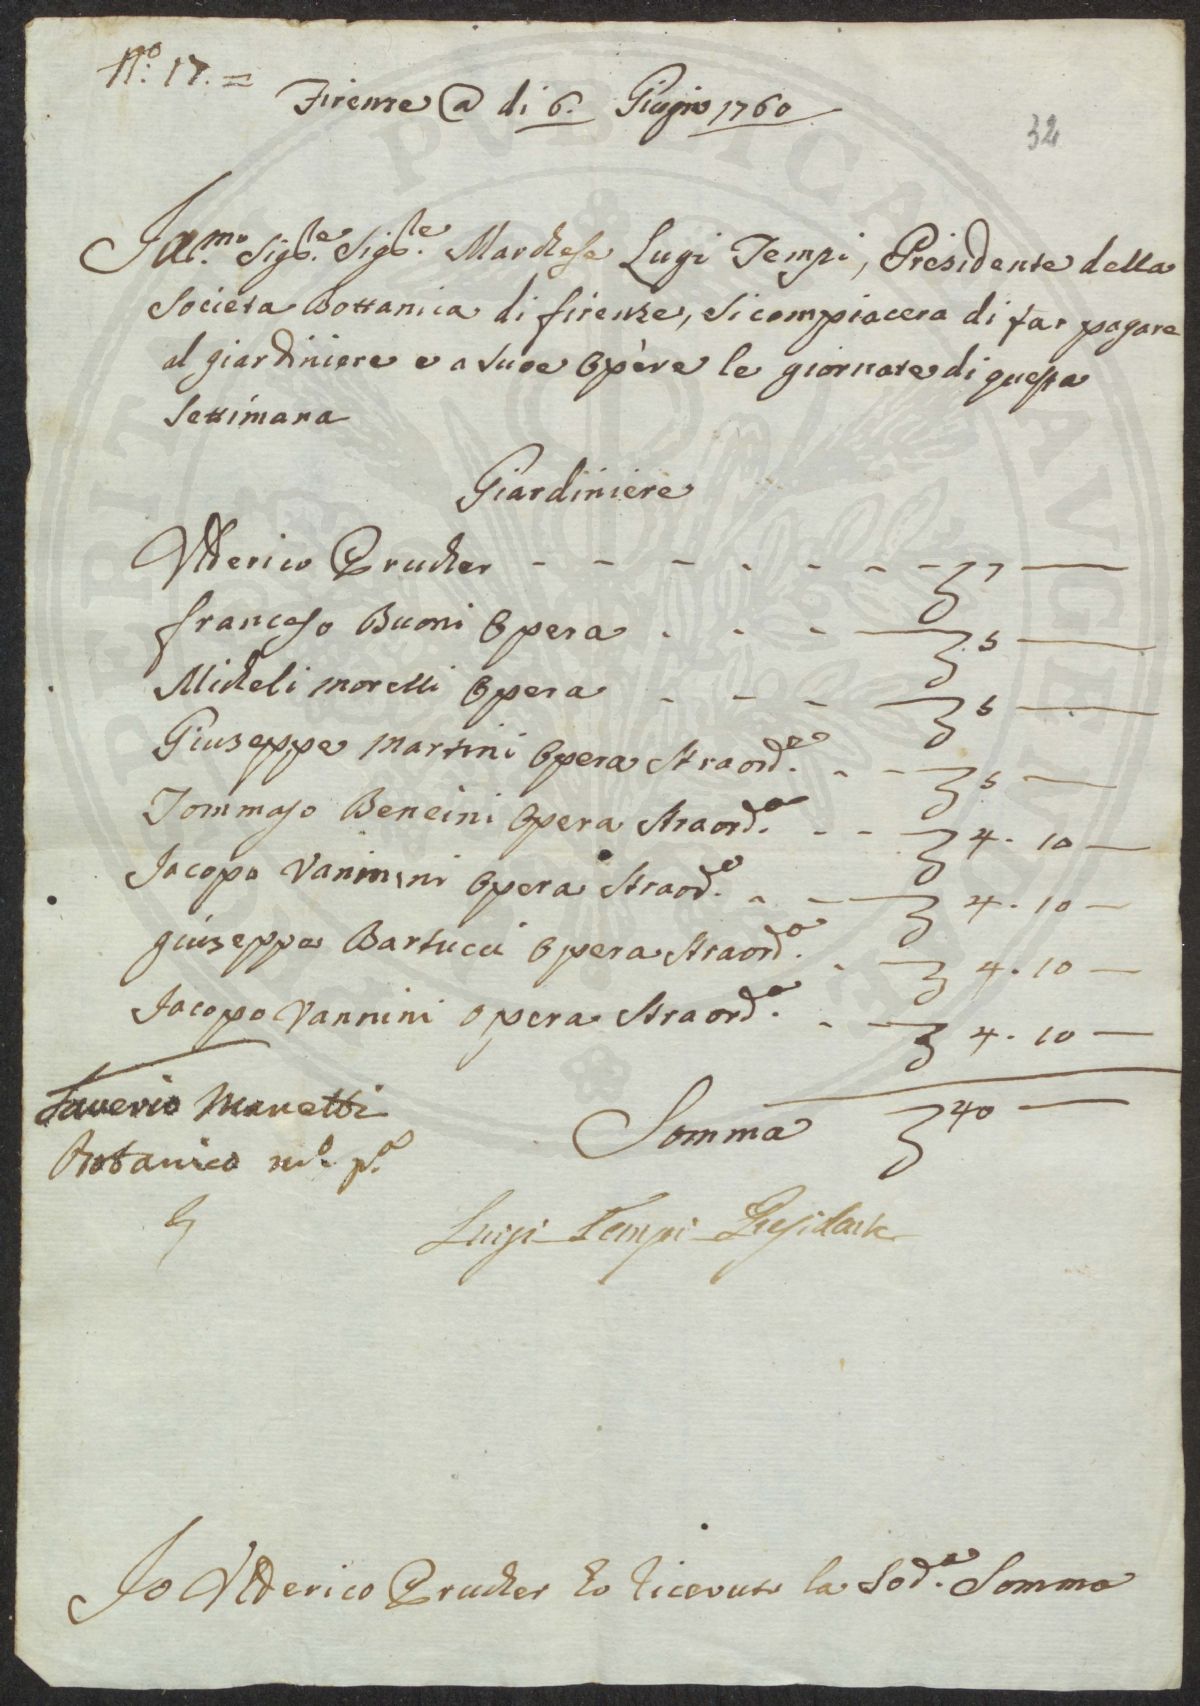 N.o 17. =
Firenze a di 6. Giugio 1760
32
Ill.mo Sig.le Sig.le Marchese Lugi Tempi, Presidente della
Societa Bottanica di firenze, si compiacera di far pagare
al giardiniere e a suoe Opère le giornate di questa
settimana
Giardiniere
Ulderico Prucker - - - - - - - 7
francesco Buoni Opera - - - 5
Micheli Moretti Opera - - - 5
Giuseppe Martini Opera Straord.e - - 5
Tommaso Bencini Opera Straord.a - - 4. 10
Jacopo Vannini Opera Straord.a - - 4. 10
giuseppe Bartucci Opera Straord.a - - 4. 10
Jacopo Vannini Opera Straord.a - - 4. 10
Somma 40
Saverio Manetti
Botanico m.o p.a
Luigi Tempi Presidente
Io Ulderico Prucker ho riceuuto la Sod.a Somma